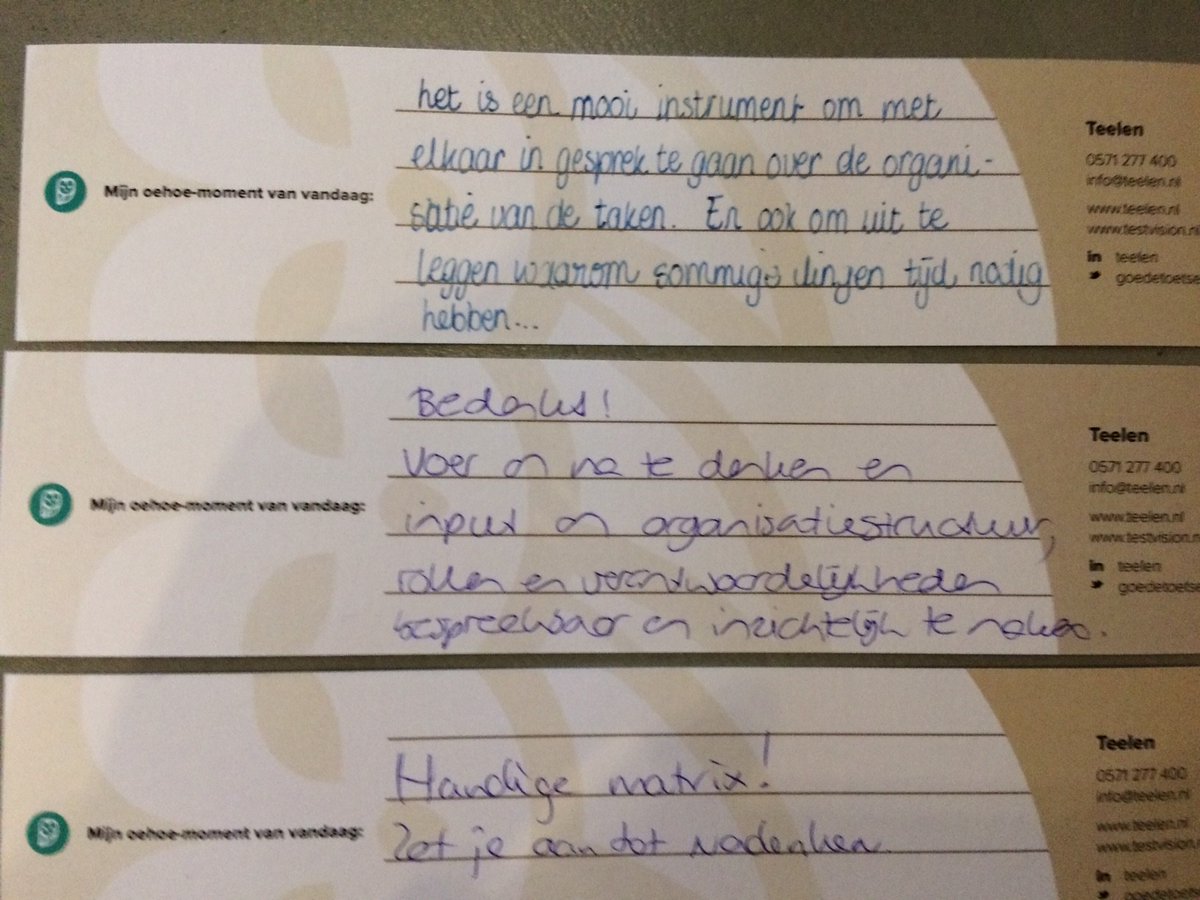 het is een mooi instrument om met
elkaar in gesprek te gaan over de organi-
satie van de taken. En ook om uit te
leggen waarom sommige dingen tijd nodig
hebben...
Mijn oehoe-moment van vandaag:
Teelen
0571 277 400
info@teelen.nl
www.teelen.nl
www.testvision.nl
in teelen
goedetoetse
Bedankt!
Voer om na te denken en
input om organisatiestructuur,
rollen en verantwoordelijkheden
bespreekbaar en inzichtelijk te maken.
Mijn oehoe-moment van vandaag:
Teelen
0571 277 400
info@teelen.nl
www.teelen.nl
www.testvision.n
in teelen
goedetoetse
Handige matrix!
Zet je aan tot nadenken.
Mijn oehoe-moment van vandaag:
Teelen
0571 277 400
info@teelen.nl
www.teelen.nl
www.testvision.n
in teelen
goedetoetse